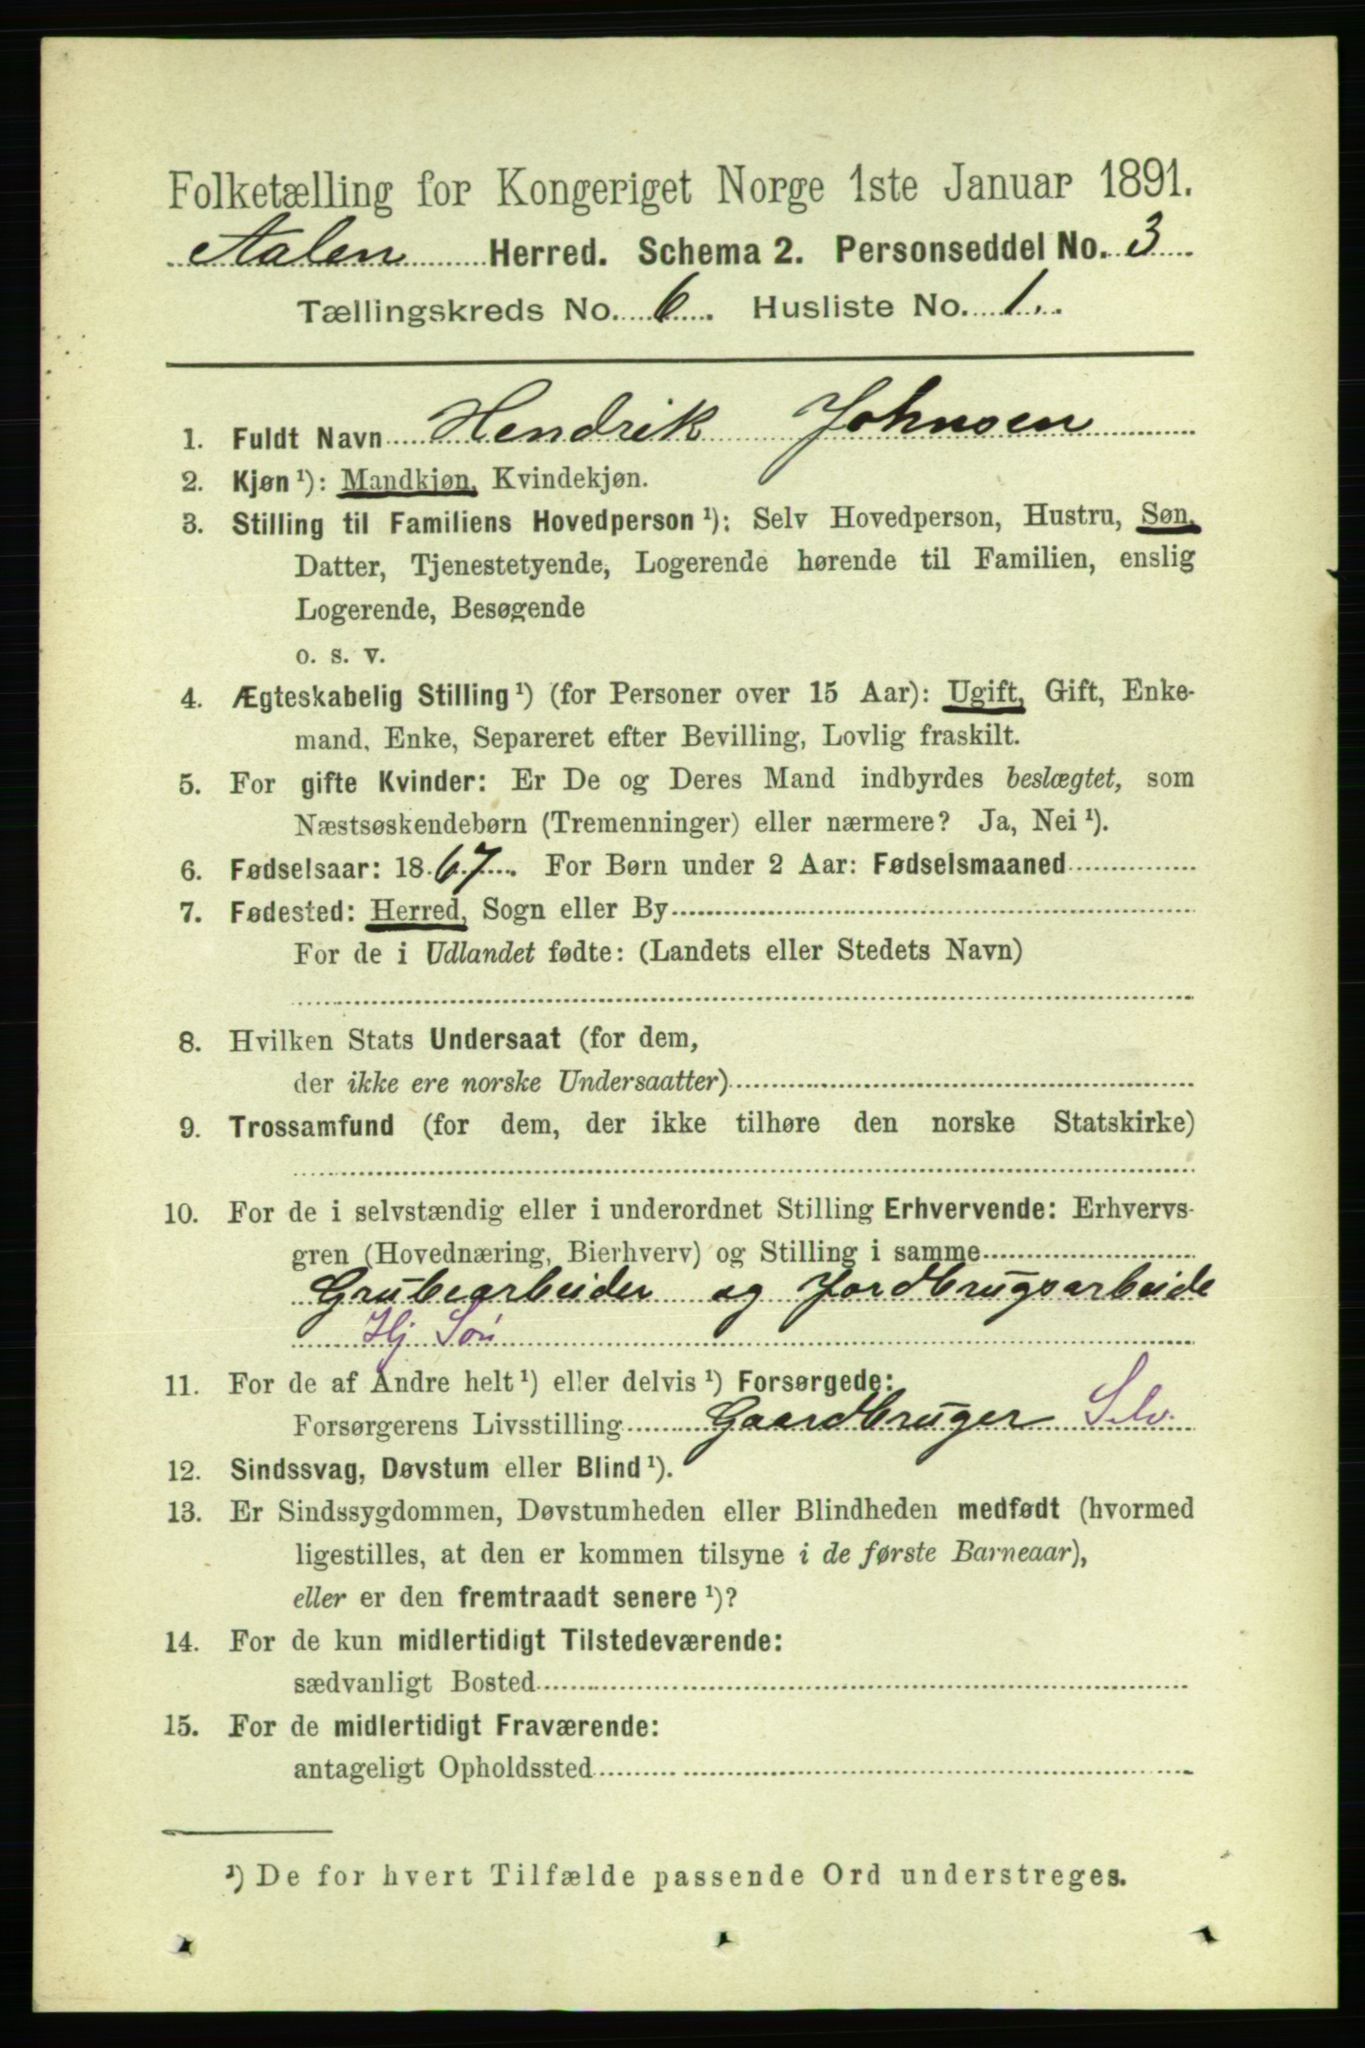 Folketælling for Kongeriget Norge 1ste Januar 1891.
Aalen Herred. Schema 2. Personseddel No. 3
Tællingskreds No. 6. Husliste No. 1.
1. Fuldt Navn Hendrik Johnsen
2. Kjøn¹): Mandkjøn, Kvindekjøn.
3. Stilling til Familiens Hovedperson¹): Selv Hovedperson, Hustru, Søn,
Datter, Tjenestetyende, Logerende hørende til Familien, enslig
Logerende, Besøgende
o. s. v.
4. Ægteskabelig Stilling¹) (for Personer over 15 Aar): Ugift, Gift, Enke-
mand, Enke, Separeret efter Bevilling, Lovlig fraskilt.
5. For gifte Kvinder: Er De og Deres Mand indbyrdes beslægtet, som
Næstsøskendebørn (Tremenninger) eller nærmere? Ja, Nei¹).
6. Fødselsaar: 1867. For Børn under 2 Aar: Fødselsmaaned
7. Fødested: Herred, Sogn eller By
For de i Udlandet fødte: (Landets eller Stedets Navn)
8. Hvilken Stats Undersaat (for dem,
der ikke ere norske Undersaatter)
9. Trossamfund (for dem, der ikke tilhøre den norske Statskirke)
10. For de i selvstændig eller i underordnet Stilling Erhvervende: Erhvervs-
gren (Hovednæring, Bierhverv) og Stilling i samme
Grubearbeider og Jordbrugsarbeide
Hj. Søn
11. For de af Andre helt¹) eller delvis¹) Forsørgede:
Forsørgerens Livsstilling Gaardbruger Selv.
12. Sindssvag, Døvstum eller Blind¹).
13. Er Sindssygdommen, Døvstumheden eller Blindheden medfødt (hvormed
ligestilles, at den er kommen tilsyne i de første Barneaar),
eller er den fremtraadt senere¹)?
14. For de kun midlertidigt Tilstedeværende:
sædvanligt Bosted
15. For de midlertidigt Fraværende:
antageligt Opholdssted
¹) De for hvert Tilfælde passende Ord understreges.